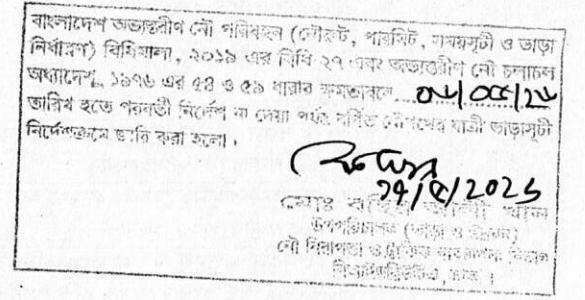 বাংলাদেশ অভ্যন্তরীণ নৌ পরিবহন (নৌরুট, পারমিট, সময়সূচী ও ভাড়া
নির্ধারণ) বিধিমালা, ২০১৯ এর বিধি ২৭ এবং অভ্যন্তরীণ নৌ চলাচল
অধ্যাদেশ, ১৯৭৬ এর ৫৪ ও ৫৯ ধারার ক্ষমতাবলে
তারিখ হতে পরবর্তী নির্দেশ না দেয়া পর্যন্ত বর্ণিত নৌপথের যাত্রী ভাড়াসূচী
নির্দেশক্রমে জারি করা হলো।
মোঃ
উপপরিচালক
নৌ নিরাপত্তা ও ট্রাফিক ব্যবস্থাপনা বিভাগ